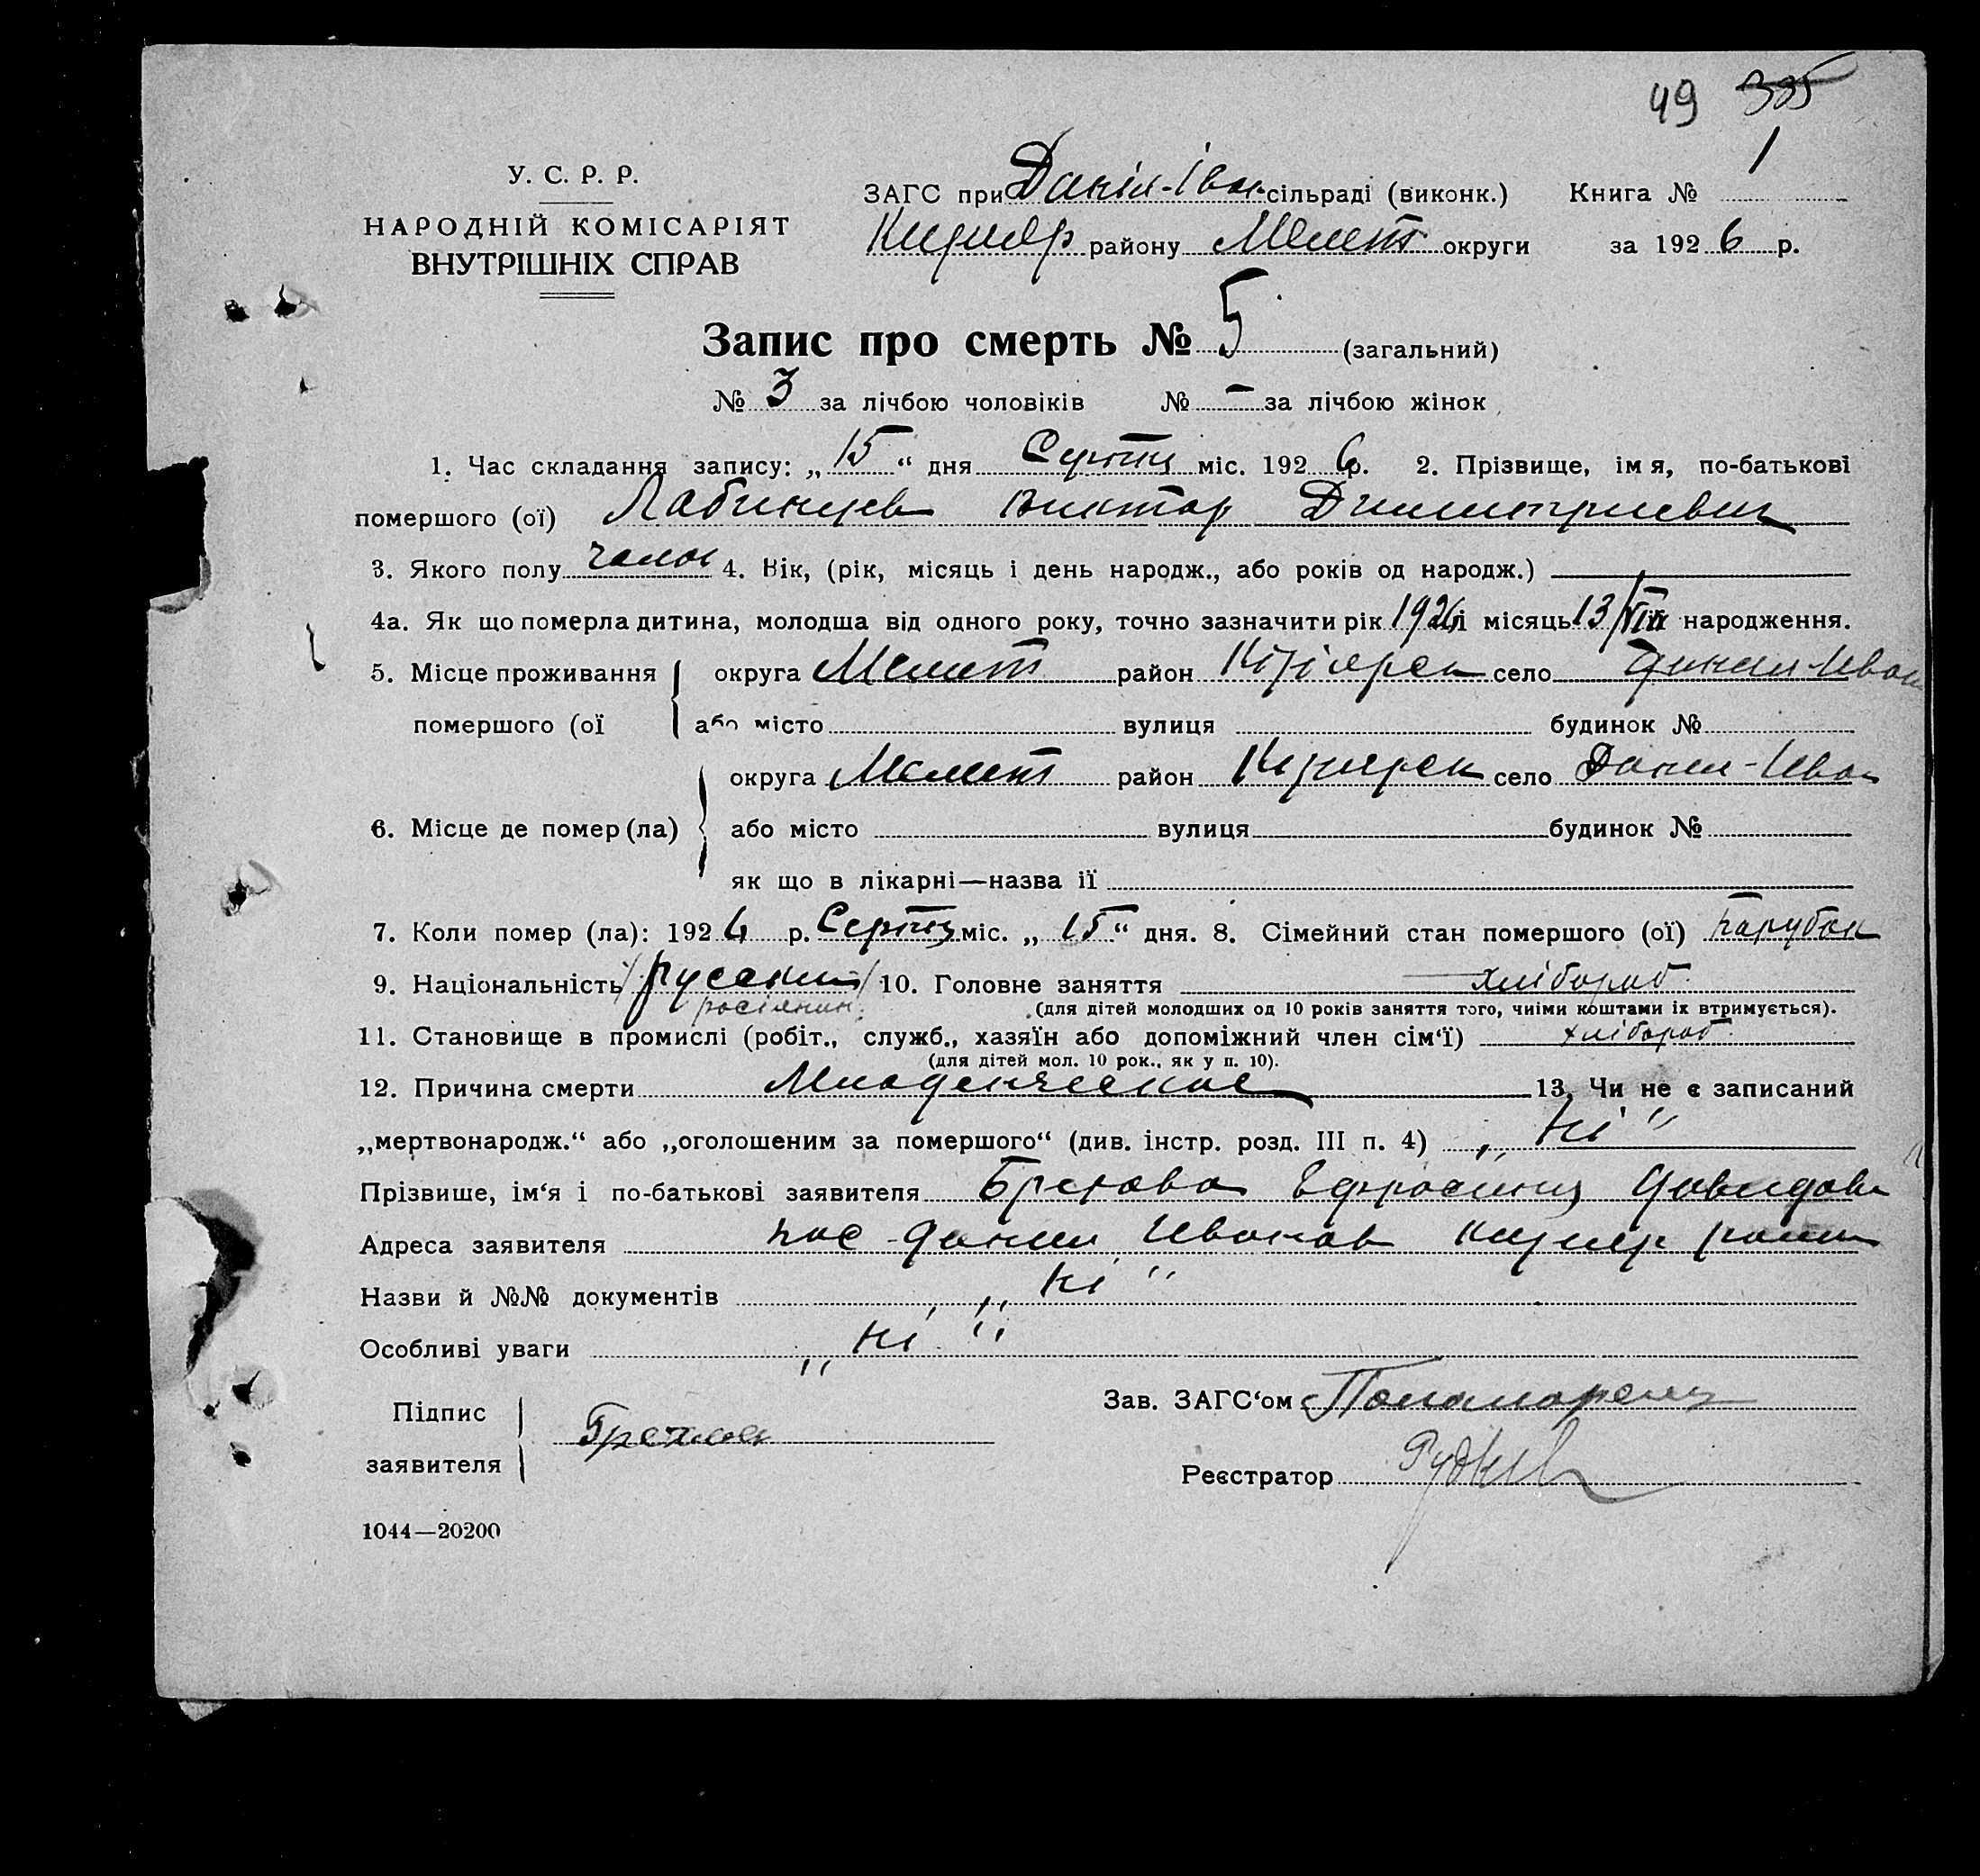 49 385
У. С. Р. Р.
НАРОДНІЙ КОМІСАРІЯТ
ВНУТРІШНІХ СПРАВ
ЗАГС при Даніл-Іван сільраді (виконк.) Книга № 1
Кизияр району Мелит округи за 1926 р.
Запис про смерть № 5 (загальний)
№ 3 за лічбою чоловіків № — за лічбою жінок
1. Час складання запису: „15“ дня Серпня міс. 1926 р. 2. Прізвище, імя, по-батькові
помершого (ої) Лабинцев Виктор Димитриевич
3. Якого полу чолов 4. Вік, (рік, місяць і день народж., або років од народж.) —
4а. Як що померла дитина, молодша від одного року, точно зазначити рік 1926 і місяць 13/VIII народження.
5. Місце проживання округа Мелит район Кізіярск село Данил-Иван
помершого (ої або місто вулиця будинок №
округа Мелит район Кизиярск село Данил-Иван
6. Місце де помер (ла) або місто вулиця будинок №
як що в лікарні—назва її
7. Коли помер (ла): 1926 р. Серпня міс. „15“ дня. 8. Сімейний стан помершого (ої) парубок
9. Національність /русский/ 10. Головне заняття хлібороб
росіянин (для дітей молодших од 10 років заняття того, чиїми коштами їх втримується).
11. Становище в промислі (робіт., служб., хазяїн або допоміжний член сім‘ї) хлібороб
(для дітей мол. 10 рок., як у п. 10).
12. Причина смерти Младенческое 13. Чи не є записаний
„мертвонародж.“ або „оголошеним за помершого“ (див. інстр. розд. III п. 4) „ні“
Прізвише, ім‘я і по-батькові заявителя Ефросиния Давидов
Адреса заявителя пос Данил Иванов Кизияр район
Назви й №№ документів „ні“
Особливі уваги „ні“
Підпис
заявителя
Зав. ЗАГС‘ом Пономаренц
Реєстратор
1044—20200